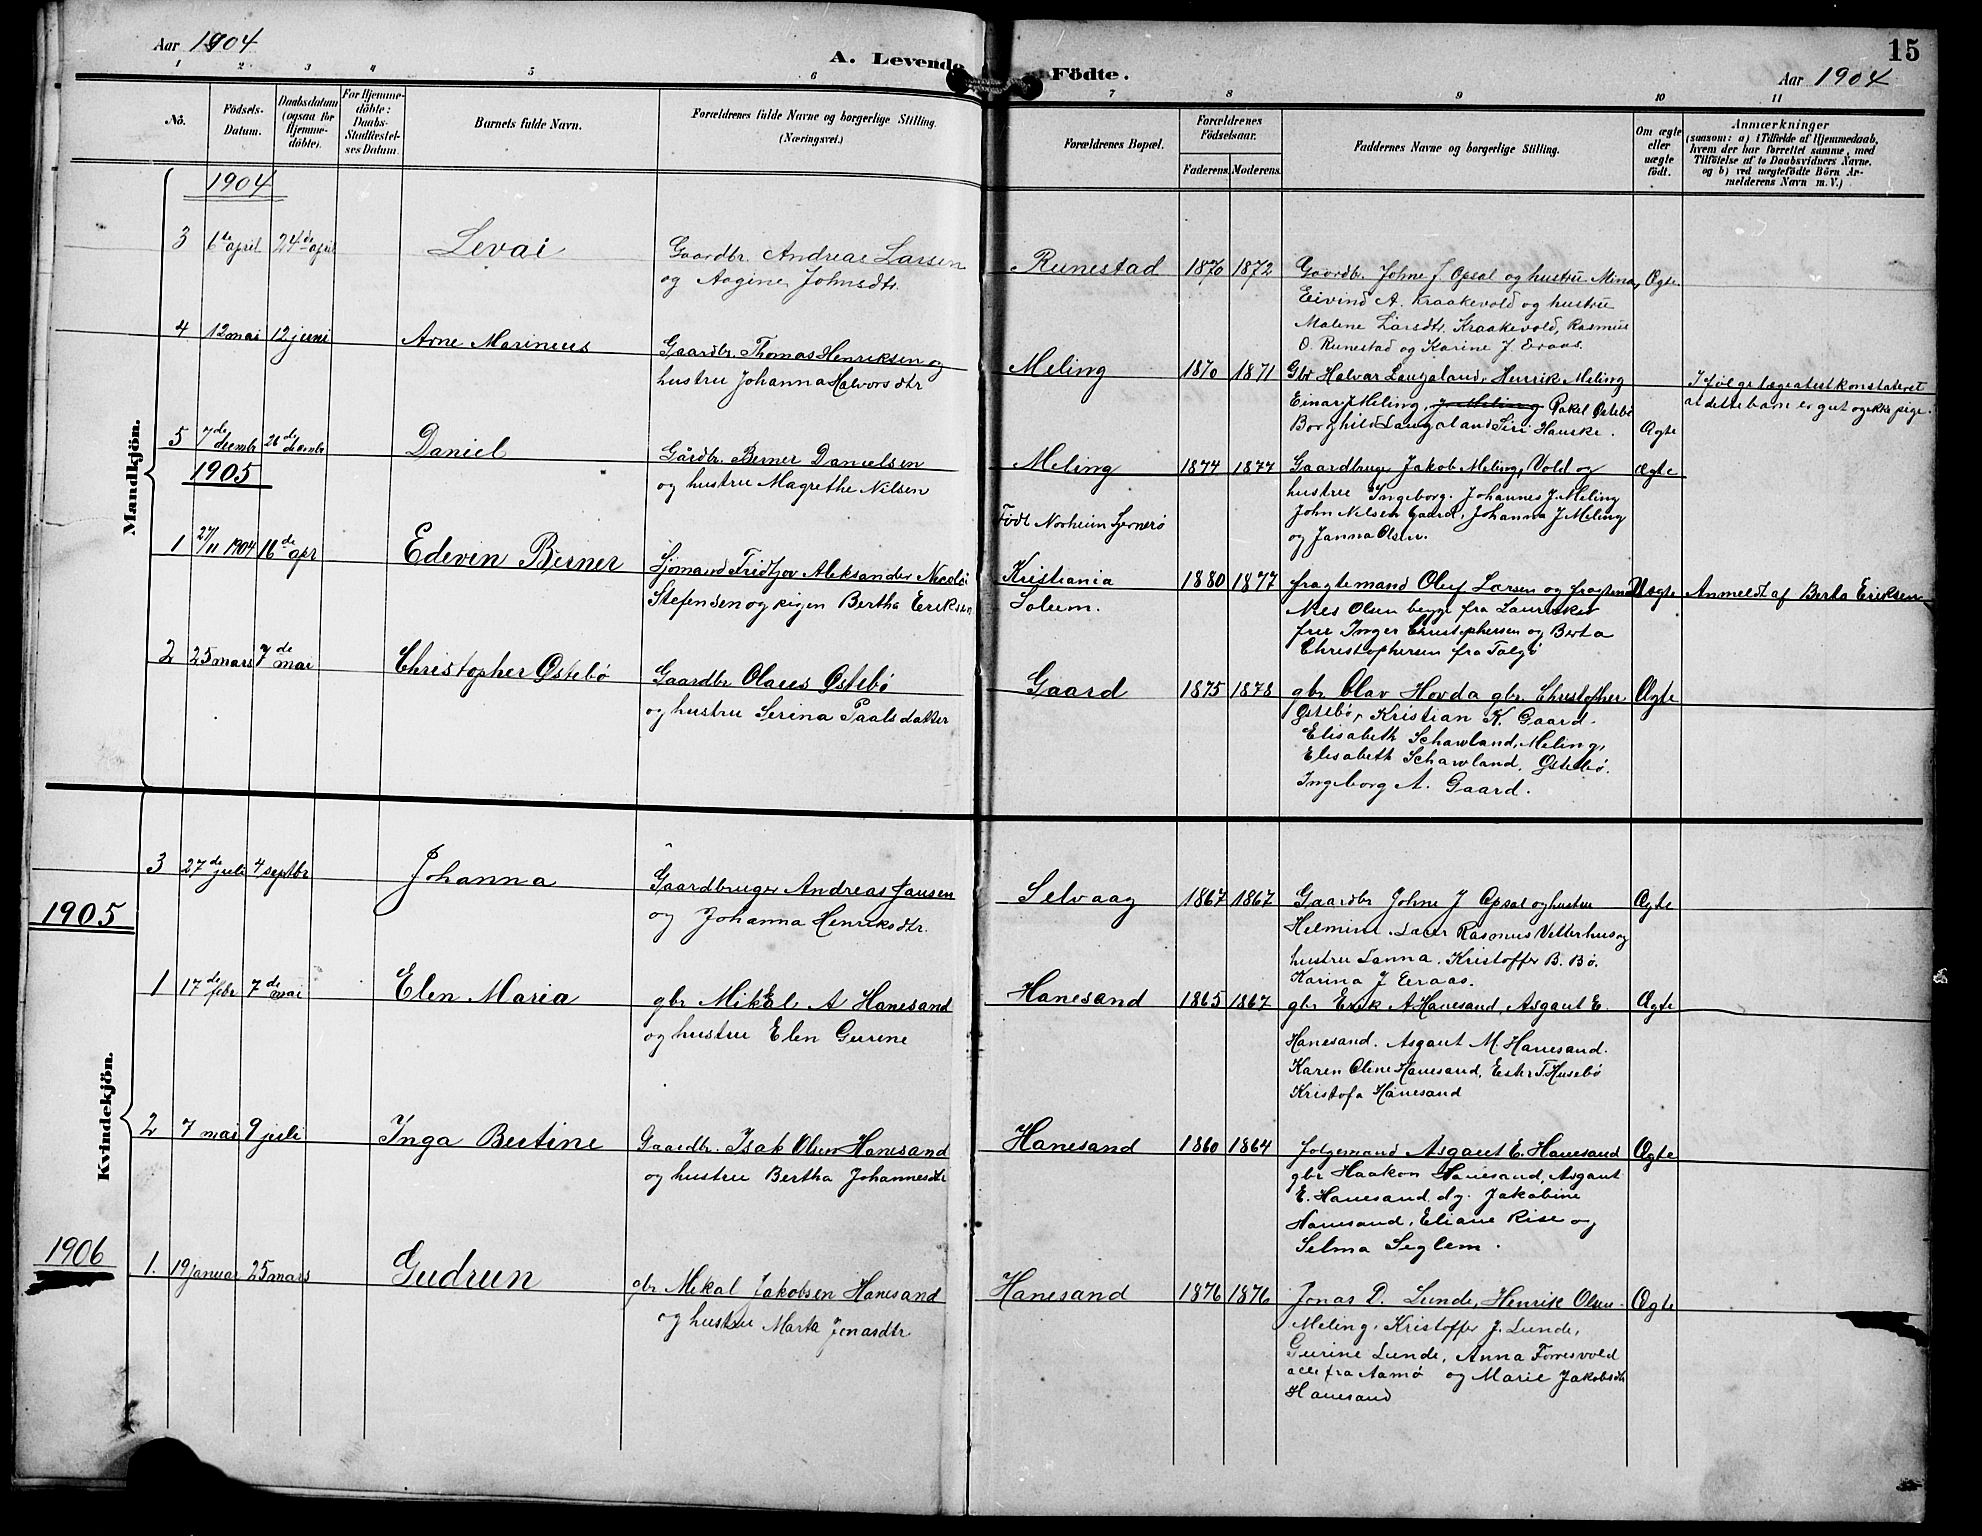 Aar 1904
A. Levende
Fødte.
15
Aar 1904
1 2 3 4 5 6 7 8 9 10 11
Nô. Födsels-Datum. Daabsdatum (ogsaa för Hjemme-döbte). For Hjemme-döbte: Daabs-Stadfæstel-ses Datum. Barnets fulde Navn. Forældrenes fulde Navne og borgerlige Stilling. (Næringsvei.)
Forældrenes Bopæl. Forældrenes Födselsaar. Faderens Moderens. Faddernes Navne og borgerlige Stilling. Om ægte eller uægte födt. Anmærkninger
(saasom: a) i Tilfælde af Hjemmedaab,
hvem der har forrettet samme, med
Tilföielse af to Daabsvidners Navne.
og b) ved uægtefödte Börn An-
melderens Navn m. V.)
Mandkjön.
1904
3 6te april 24de april Levai Gaardbr. Andreas Larsen
og Aagine Johnsdtr.
Runestad 1870 1872 Gaardbr. Johne J Opsal og hustru Mina, Ægte
Eivind A. Kraakevold og hustru
Malene Larsdtr. Kraakevold, Rasmus
O. Runestad og Karine J. Eraas.
4 12 mai 12 juni Arne Marineus Gaardbr. Thomas Henriksen og
hustru Johanna Halvorsdtr
Meling 1870 1871 Gbr Halvar Laugaland, Henrik Meling
Einar J Meling, J. Meling Rakel Østebø
Borghild Laugaland Siri Hauske. Ægte
I følge lægeatest konstateret
at dette barn er gut og ikke pige.
5 7de decembr 26de decembr Daniel Gårdbr. Berner Danielsen
og hustru Magrethe Nilsen
Meling 1874 1877 Gaardbruger Jakob Meling, Vold og ægte
hustru Ingeborg. Johannes J. Meling
John Nilsen Gaard, Johanna J Meling
og Janna Olsen.
1905
1 27/11 1904 16de apr Edevin Berner Sjømand Fridtjov Aleksander Nicolai
Stefensen og pigen Bertha Eriksen
Født Norheim Sjernerø
Kristiania
Solum.
1880 1877 fragtemand Oluf Larsen og fragtemd Uægte Anmeldt af Berta Eriksen
Nils Olsen begge fra
frue Inger Christophersen og Berta
Christophersen fra Talgø
2 25 mars 7de mai Christopher Østebø Gaardbr Olaus Østebø
og hustru Serina Paalsdatter
Gaard 1875 1878 gbr. Olav Hovda gbr. Christopher Ægte
Østebø, Kristian K. Gaard.
Elisabeth Schawland, Meling,
Elisabeth Schawland, Østebø.
Ingeborg A. Gaard.
Kvindekjön.
3 27de juli 4 septbr Johanna Gaardbruger Andreas Jansen
og Johanna Henriksdtr.
Selvaag 1867 1867 Gaardbr Johne J Opsal og hustru Ægte
Helmine. Rasmus Vetterhus og
hustru Janna. Kristoffer B. Bø.
Karina J Eraas.
1905
1 17de febr 7de mai Elen Maria gbr Mikkel A Hanesand
og hustru Elen Gurine
Hanesand 1865 1867 gbr Erik A Hanesand, Asgaut E. Ægte
Hanesand. Asgaut M Hanesand.
Karen Oline Hanesand, Ester T Husebø
Kristofa Hanesand
2 7 mai 9 juli Inga Bertine Gaardbr. Isak Olsen Hanesand
og hustru Bertha Johannesdtr
Hanesand 1860 1864 følgemand Asgaut E. Hanesand Ægte
gbr Haakon Hanesand, Asgaut
E. Hanesand. dg. Jakobine
Hanesand, Eliane Rise og
Selma Seglem.
1906
1. 19 januar 25 mars Gudrun gbr Mikal Jakobsen Hanesand
og hustru Marta Jonasdtr
Hanesand 1876 1876 Jonas P. Lunde, Henrik Olsen Ægte
Meling, Kristoffer J. Lunde,
Gurine Lunde, Anna Forresvold
alle fra Aamø og Marie Jakobsdtr
Hanesand